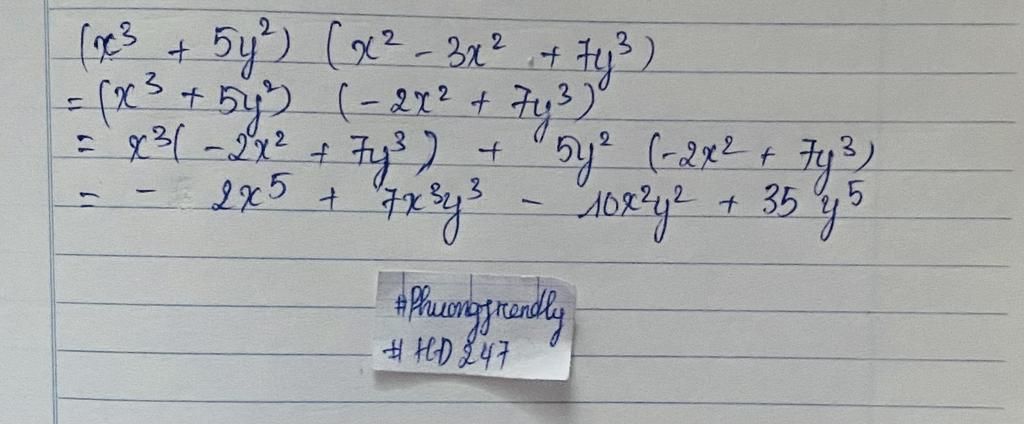 (x³ + 5y²) (x² - 3x² + 7y³)
= (x³ + 5y²) (-2x² + 7y³)
= x³(-2x² + 7y³) + 5y² (-2x² + 7y³)
= - 2x⁵ + 7x³y³ - 10x²y² + 35y⁵
#Phuongfrendly
#HD247